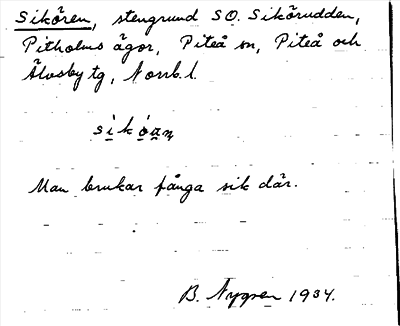 Sikören, stengrund SO. Sikörudden,
Pitholms ägor, Piteå sn, Piteå och
Älvsby tg, Norrb. l.
sìkóan
Man brukar fånga sik där.
B. Nygren 1934.